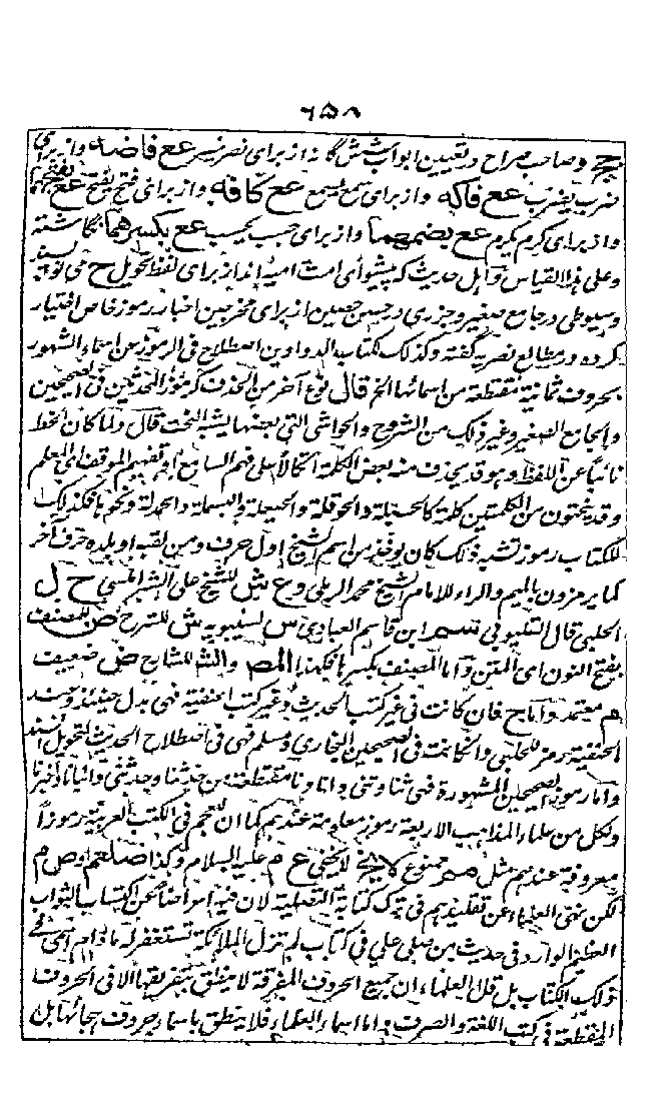 ٦٥٨
وصاحب صراح در تعیین ابواب شش گانه از برای نصر ینصر عع فاضه واز برای
ضرب یضرب عع فاکه واز برای سمع یسمع عع کافه واز برای فتح یفتح عع بفتحهما
واز برای کرم یکرم عع بضمهما واز برای حسب یحسب عع بکسرهما نگاشته
وعلی هذا القیاس اهل حدیث که پیشوای امت امیه اند از برای لفظ تحویل ح می نویسند
وسیوطی در جامع صغیر وجزری در حصن حصین از برای مخرجین اخبار رموز خاص اختیار
کرده ودر مطالع نصریه گفته وکذلک لکتاب الدواوین اصطلاح فی الرموز عن اسماء الشهور
بحروف ثمانیة مقتطعة من اسمائها الخ قال نوع آخر من الحذف کرموز المحدثین فی الصحیحین
والجامع الصغیر وغیر ذلک من الشروح والحواشی التی بعضها یشبه النحت قال ولما کان الخط
نائباً عن اللفظ وهو قد یحذف منه بعض الکلمة اتکالاً علی فهم السامع او تفهیم الموقف ای المعلم
وقد ینحتون من الکلمتین کلمة کالحسبلة والحوقلة والحیعلة والبسملة والحمدلة ونحوها فکذلک
للکتاب رموز تشبه ذلک کان یوخذ من اسم الشیخ اول حرف ومن لقبه او بلده حرف آخر
کما یرمزون بالمیم والراء للامام الشیخ محمد الرملی وع ش للشیخ علی الشبراملسی ح ل
الحلبی قال القلیوبی سم ابن قاسم العبادی س لسیبویه ش للشرح ص للمصنف
بفتح النون ای المتن واما المصنف بکسرها فهکذا المص والش للشارح ض ضعیف
م معتمد واما ح فان کانت فی غیر کتب الحدیث وغیر کتب الحنفیة فهی بدل حینئذ وعند
الحنفیة رمز للحلبی وان کانت فی الصحیحین البخاری ومسلم فهی فی اصطلاح الحدیث لتحویل السند
واما رموز الصحیحین المشهورة فهی ثنا وثنی وانا ونا مقتطعة من حدثنا وحدثنی وانبانا واخبرنا
ولکل من علماء المذاهب الاربعة رموز معلومة عندهم کما ان للعجم فی الکتب العربیة رموزاً
معروفة عندهم مثل مم ممنوع لا یخفی ع م علیه السلام وکذا صلعم او ص م
لکن نهی العلماء عن تقلیدهم فی ترک کتابة التصلیة لان فیه اعراضاً عن اکتساب الثواب
العظیم الوارد فی حدیث من صلی علی فی کتاب لم تزل الملائکة تستغفر له ما دام اسمی فی
ذلک الکتاب بل قال العلماء ان جمیع الحروف المفرقة لا ینطق بتفریقها الا فی الحروف
المقتطعة فی کتب اللغة والصرف واما اسماء العلماء فلا ینطق باسماء حروف هجائها بل